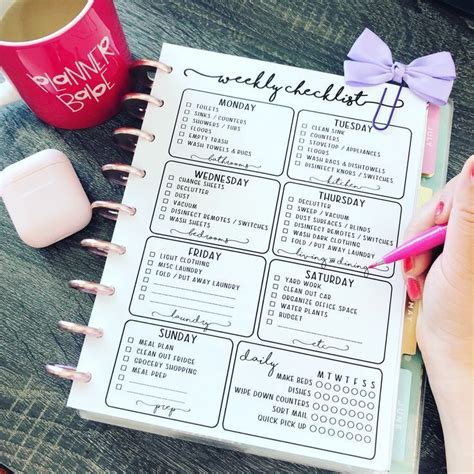 PLANNER
BABE
weekly checklist
MONDAY
TOILETS
SINKS / COUNTERS
SHOWERS / TUBS
FLOORS
EMPTY TRASH
WASH TOWELS & RUGS
bathrooms
TUESDAY
CLEAN SINK
COUNTERS
STOVETOP / APPLIANCES
FLOORS
WASH RAGS & DISHTOWELS
DISINFECT KNOBS / SWITCHES
kitchen
WEDNESDAY
CHANGE SHEETS
DECLUTTER
DUST
VACUUM
DISINFECT REMOTES / SWITCHES
WASH SHEETS
bedrooms
THURSDAY
DECLUTTER
SWEEP / VACUUM
DUST SURFACES / BLINDS
DISINFECT REMOTES / SWITCHES
WASH DARK CLOTHING
FOLD / PUT AWAY LAUNDRY
living & dining
FRIDAY
LIGHT CLOTHING
MISC LAUNDRY
FOLD / PUT AWAY LAUNDRY
laundry
SATURDAY
YARD WORK
CLEAN OUT CAR
ORGANIZE OFFICE SPACE
WATER PLANTS
BUDGET
etc
SUNDAY
MEAL PLAN
CLEAN OUT FRIDGE
GROCERY SHOPPING
MEAL PREP
prep
daily
M T W T F S S
MAKE BEDS
DISHES
WIPE DOWN COUNTERS
SORT MAIL
QUICK PICK UP